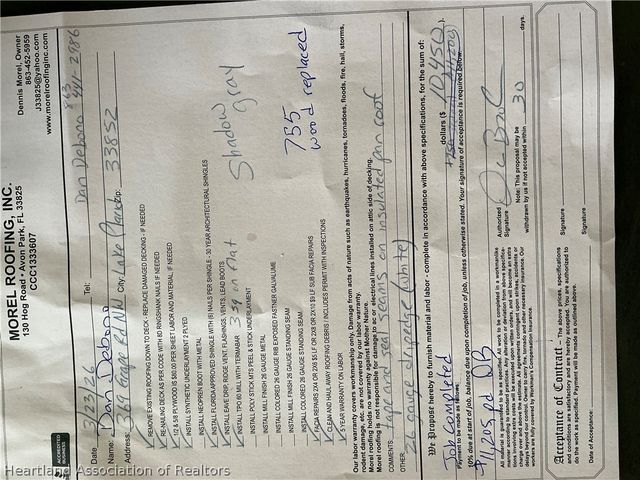 ACCREDITED
BUSINESS
MOREL ROOFING, INC.
130 Hog Road • Avon Park, FL 33825
CCC1333607
Dennis Morel, Owner
863-452-5959
J33825@yahoo.com
www.morelroofinginc.com
Date 3/23/26 Tel: Dan Debono 863
Name: Dan Debono
Address: City: Lake Placid Zip: 33852
REMOVE EXISTING ROOFING DOWN TO DECK - REPLACE DAMAGED DECKING - IF NEEDED
RE-NAILING DECK AS PER CODE WITH 8D RINGSHANK NAILS IF NEEDED
INSTALL SYNTHETIC UNDERLAYMENT 2 PLYED
INSTALL NEOPREN BOOT WITH METAL
INSTALL FLORIDA APPROVED SHINGLE WITH 6 NAILS PER SHINGLE - 30 YEAR ARCHITECTURAL SHINGLES
INSTALL EAVE DRIP, RIDGE VENT, FLASHINGS, VENTS, LEAD BOOTS
3 sq in flat
INSTALL MILL FINISH 26 GAUGE METAL
INSTALL COLORED 26 GAUGE RIB EXPOSED FASTENER GALVALUME
INSTALL MILL FINISH 26 GAUGE STANDING SEAM
INSTALL COLORED 26 GAUGE STANDING SEAM
CLEAN AND HAUL AWAY ROOFING DEBRIS / INCLUDES PERMIT WITH INSPECTIONS
5 YEAR WARRANTY ON LABOR
Shadow
gray
755
wood replaced
Our labor warranty covers workmanship only. Damage from acts of nature such as earthquakes, hurricanes, tornadoes, floods, fire, hail, storms,
rodent damage, etc. are not covered by our labor warranty.
Morel roofing holds no warranty against Mother Nature.
Morel roofing is not responsible for damage to ac or electrical lines installed on attic side of decking.
COMMENTS: and seal seams on insulated pan roof
OTHER: 26 gauge dripedge (white)
We Propose hereby to furnish material and labor - complete in accordance with above specifications, for the sum of:
dollars ($ 10,450 ).
Job Completed
Payment to be made as follows:
10% due at start of job, balance due upon completion of job, unless otherwise stated. Your signature of acceptance is required below.
$11,205 pd DB
All material is guaranteed to be as specified. All work to be completed in a workmanlike
manner according to standard practices. Any alteration or deviation from above specifica-
tions involving extra costs will be executed only upon written orders, and will become an extra
charge over and above the estimate. All agreements contingent upon strikes, accidents or
delays beyond our control. Owner to carry fire, tornado and other necessary insurance. Our
workers are fully covered by Workman's Compensation Insurance.
Authorized
Signature
Note: This proposal may be
withdrawn by us if not accepted within 30 days.
Acceptance of Contract - The above prices, specifications
and conditions are satisfactory and are hereby accepted. You are authorized to
do the work as specified. Payment will be made as outlined above.
Date of Acceptance:
Signature
Signature
Heartland Association of Realtors